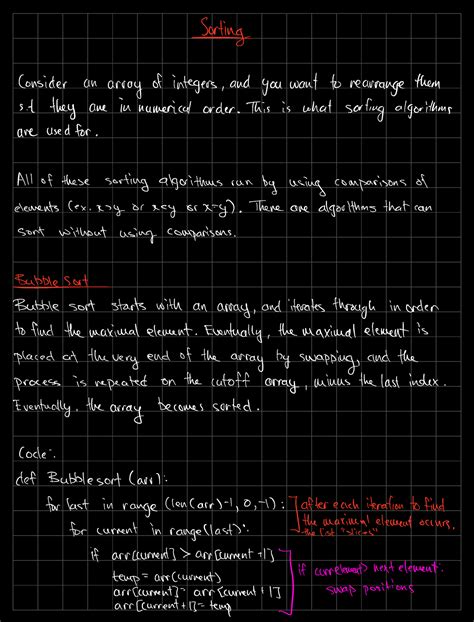 Sorting
Consider an array of integers, and you want to rearrange them
s.t they are in numerical order. This is what sorting algorithms
are used for.
All of these sorting algorithms run by using comparisons of
elements (ex. x>y or x<y or x=y). There are algorithms that can
sort without using comparisons.
Bubble Sort
Bubble sort starts with an array, and iterates through in order
to find the maximal element. Eventually, the maximal element is
placed at the very end of the array by swapping, and the
process is repeated on the cutoff array, minus the last index.
Eventually, the array becomes sorted.
Code:
def Bubblesort (arr):
for last in range (len(arr)-1, 0, -1): after each iteration to find
the maximal element occurs,
the list "slices"
for current in range(last):
if arr[current] > arr[current +1] if current > next element:
temp = arr[current] swap positions
arr[current] = arr[current +1]
arr[current+1] = temp